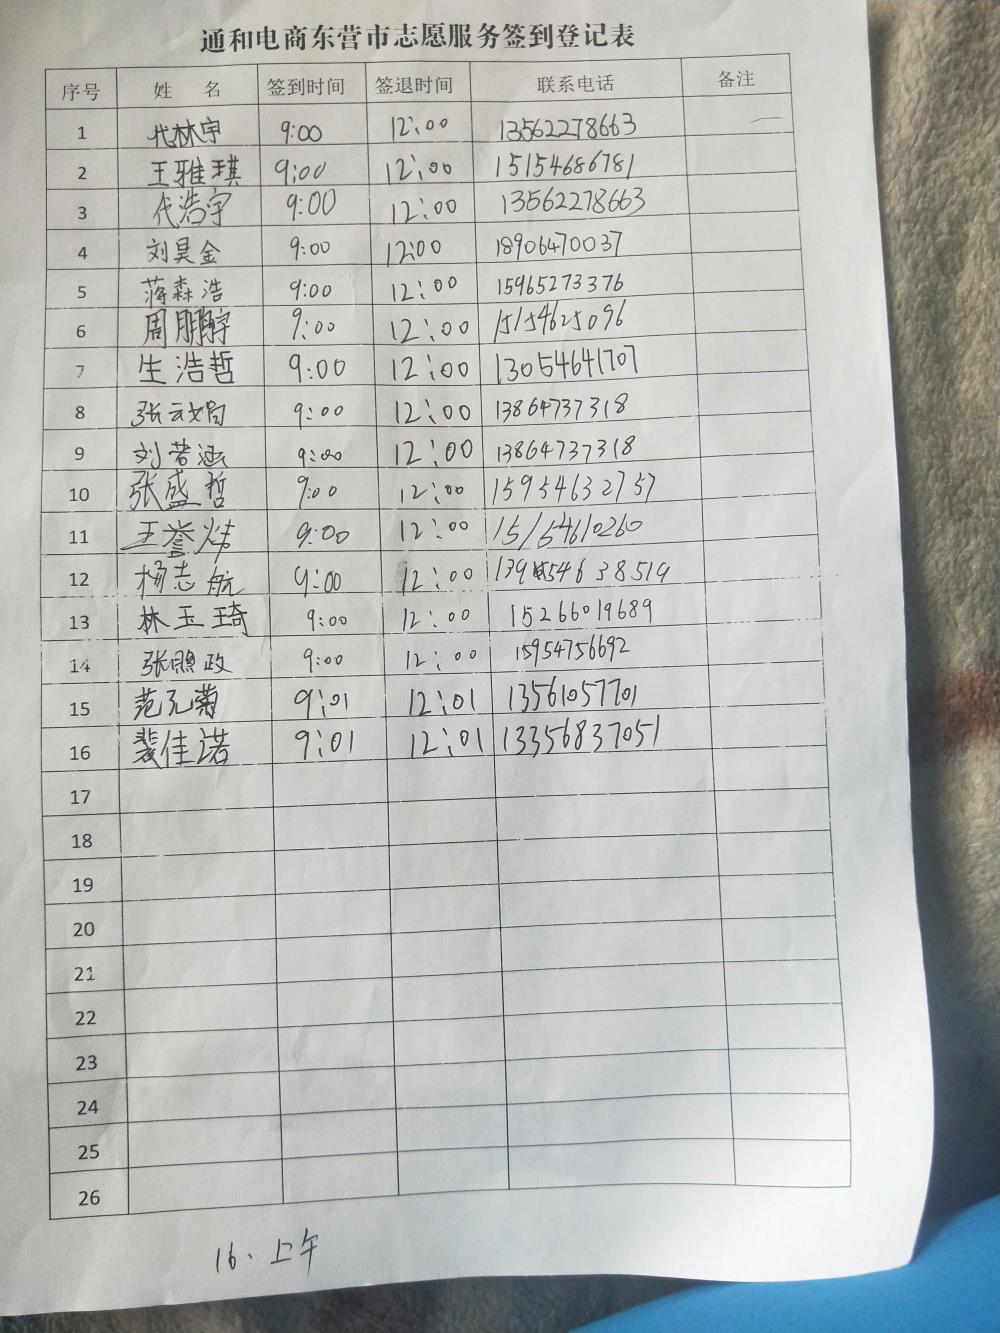 通和电商东营市志愿服务签到登记表
序号 姓 名 签到时间 签退时间 联系电话 备注
1 代林宇 9:00 12:00 13562278663
2 王雅琪 9:00 12:00 15154686781
3 代浩宇 9:00 12:00 13562278663
4 刘昊金 9:00 12:00 18906470037
5 蒋森浩 9:00 12:00 15965273376
6 周鹏宇 9:00 12:00 15154625096
7 生浩哲 9:00 12:00 13054641707
8 张云娟 9:00 12:00 13864737318
9 刘若涵 9:00 12:00 13864737318
10 张盛哲 9:00 12:00 15954632757
11 王誉炜 9:00 12:00 15154610260
12 杨志航 9:00 12:00
13 林玉琦 9:00 12:00 15266019689
14 张鹏政 9:00 12:00 15954756692
15 范元菊 9:01 12:01 13561057701
16 裴佳诺 9:01 12:01 13356837051
17
18
19
20
21
22
23
24
25
26
16、上午